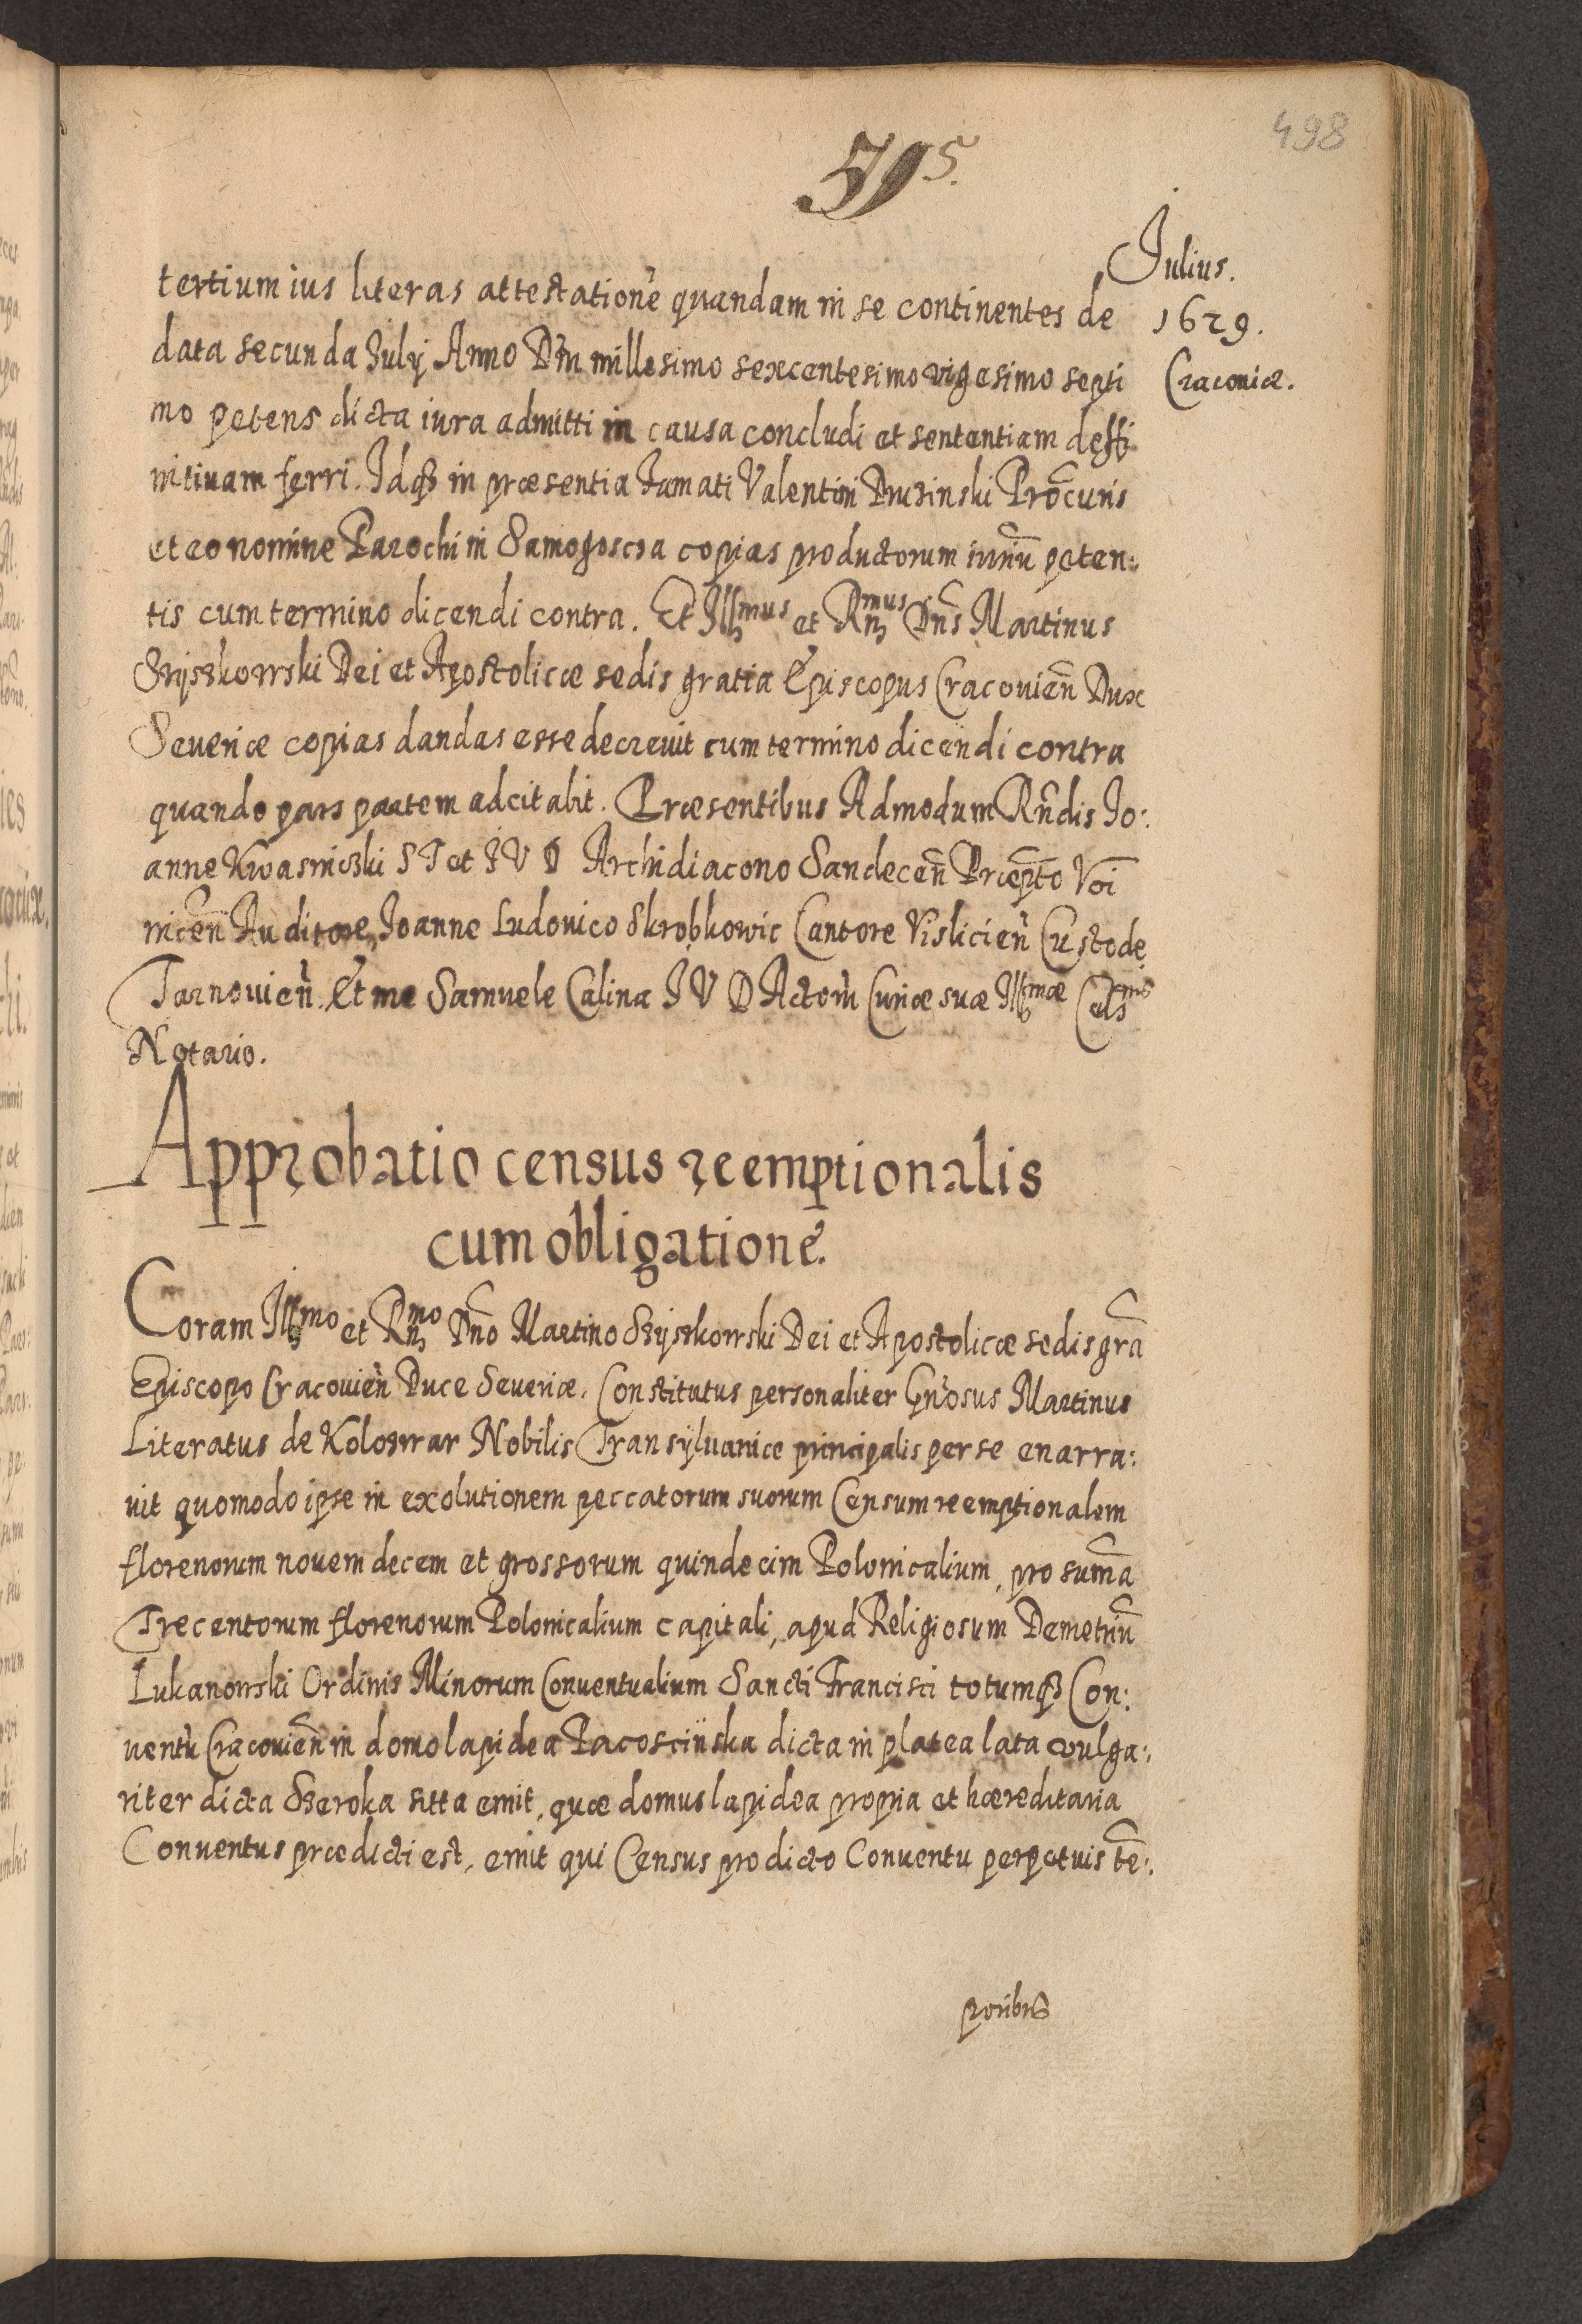 498
595.
Julius.
1629.
Cracoviæ.
tertium ius literas attestationē quandam in se continentes de
data secunda Julÿ Anno Dñi millesimo sexcentesimo vigesimo septi
mo petens dicta iura admitti in causa concludi et sententiam deffi
nitivam ferri. Idqȝ in præsentia Famati Valentini Druzinski Procuris
et eo nomine Parochi in Samogoscia copias productorum iuriū peten:
tis cum termino dicendi contra. Et Illmus et Rñmus Dñs Martinus
Szÿszkowski Dei et Apostolicæ sedis gratia Episcopus Cracovieñ Dux
Severiæ copias dandas esse decrevit cum termino dicendi contra
quando pars partem adcitabit. Præsentibus Admodum Rñdis Jo:
anne Kwasniczki S T et I V D Archidiacono Sandeceñ Præpto Voi
niceñ Auditore, Joanne Ludovico Skrobkowic Cantore Vislicieñ Custode
Tarnovieñ. Et me Samuele Calina I V D Actorū Curiæ suæ Illmæ Cels
Notario.
Approbatio census reemptionalis
cum obligatione.
Coram Illmo et Rñmo Dño Martino Szÿszkowski Dei et Apostolicæ sedis grā
Episcopo Cracovieñ Duce Severiæ. Constitutus personaliter Gñosus Martinus
Literatus de Kolosvar Nobilis Transÿlvaniæ principalis per se enarra:
vit quomodo ipse in exolutionem peccatorum suorum Censum reemptionalem
florenorum novem decem et grossorum quindecim Polonicalium, pro sumā
Trecentorum florenorum Polonicalium capitali, apud Religiosum Demetriū
Lukanowski Ordinis Minorum Conventualium Sancti Francisci totumqȝ Con:
ventū Cracovieñ in domo lapidea Pacosciiska dicta in platea lata vulga:
riter dicta Szeroka sitta emit, quæ domus lapidea propria et hæreditaria
Conventus prædicti est, emit qui Census pro dicto Conventu perpetuis tē:
poribus